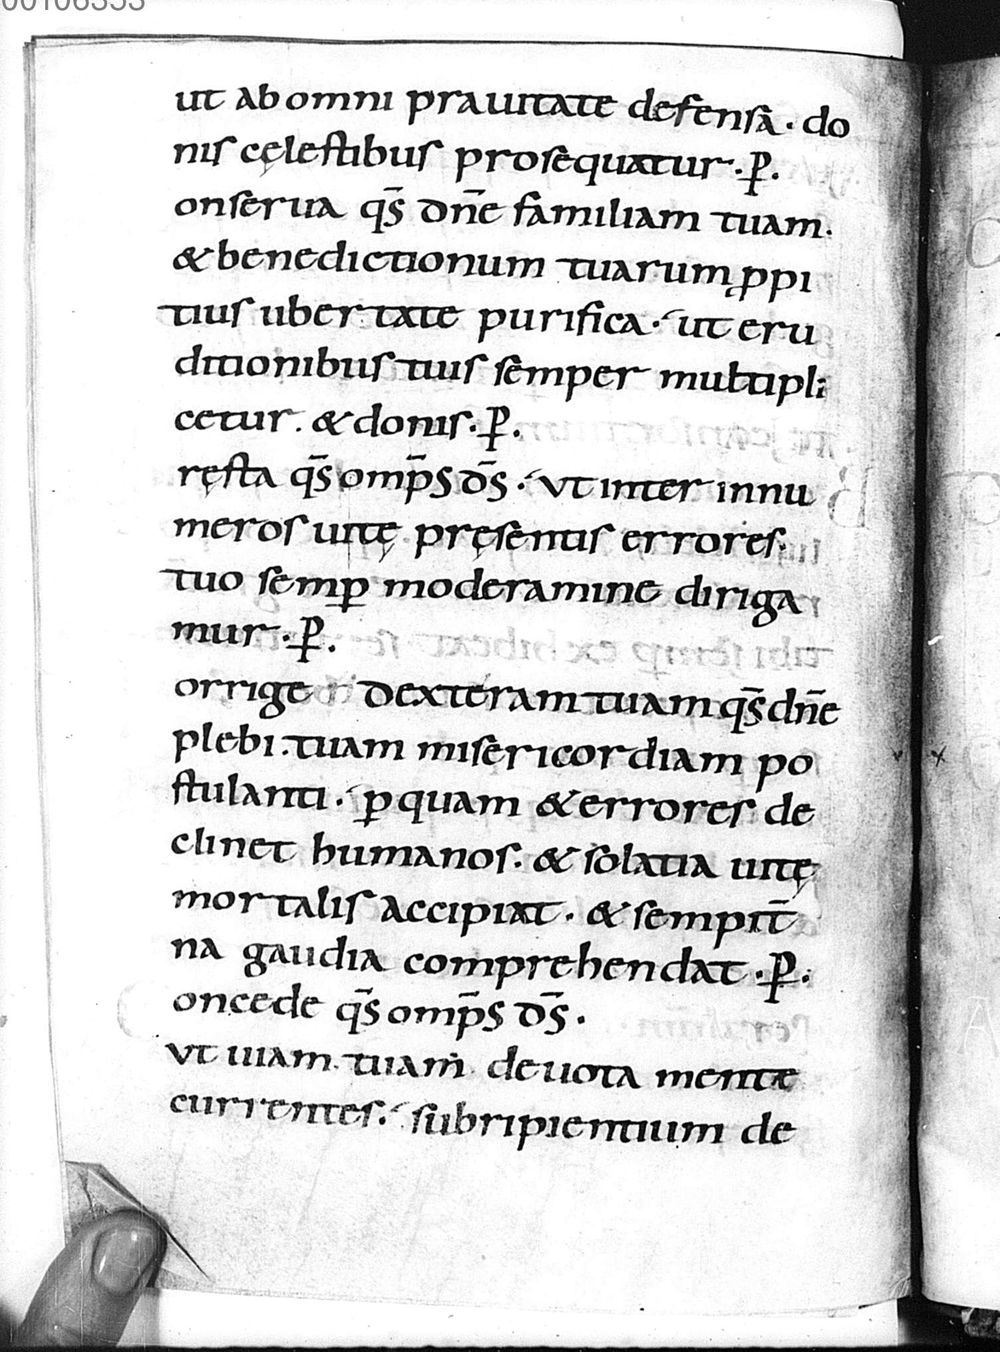 00106353
ut ab omni prauitate defensā · do
nis cęlestibus prosequatur · P̄.
onserua qs̄ dn̄e familiam tuam.
& benedictionum tuarum ꝓpi
tius ubertate purifica · ut eru
ditionibus tuis semper multipli
cetur. & donis · P̄.
ręsta qs̄ omp̄s ds̄ · ut inter innu
meros uitę pręsentis errores.
tuo semꝑ moderamine diriga
mur · P̄.
orrige dexteram tuam qs̄ dn̄e
plebi. tuam misericordiam po
stulanti · ꝑ quam & errores de
clinet humanos. & solatia uitę
mortalis accipiat · & sempit̄
na gaudia comprehendat · P̄.
oncede qs̄ omp̄s ds̄ ·
ut uiam tuam deuota mente
currentes. subripientium de